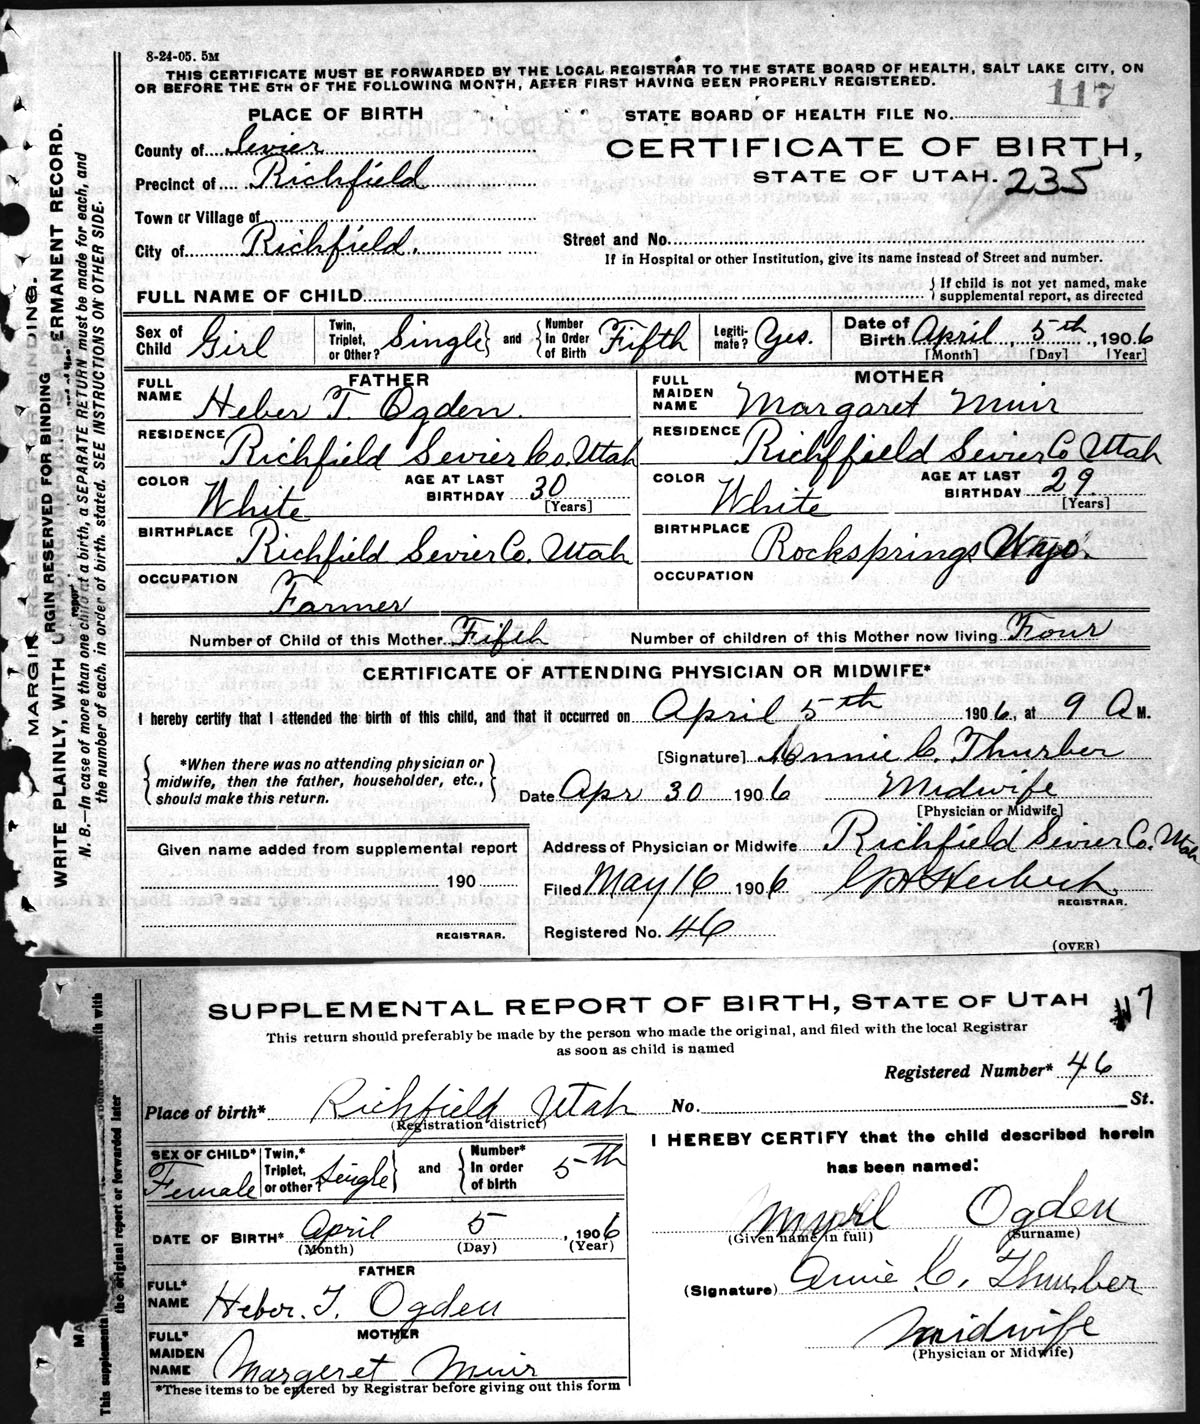 8-24-05. 5M
THIS CERTIFICATE MUST BE FORWARDED BY THE LOCAL REGISTRAR TO THE STATE BOARD OF HEALTH, SALT LAKE CITY, ON
OR BEFORE THE 5TH OF THE FOLLOWING MONTH, AFTER FIRST HAVING BEEN PROPERLY REGISTERED.
117
PLACE OF BIRTH
STATE BOARD OF HEALTH FILE No.
County of Sevier
CERTIFICATE OF BIRTH,
Precinct of Richfield
STATE OF UTAH. 235
Town or Village of
City of Richfield.
Street and No.
If in Hospital or other Institution, give its name instead of Street and number.
FULL NAME OF CHILD
If child is not yet named, make
supplemental report, as directed
Sex of Child Girl
Twin, Triplet, or Other? Single and Number In Order of Birth Fifth
Legiti-mate? Yes.
Date of Birth April, 5th, 1906
[Month] [Day] [Year]
FATHER
FULL NAME Heber T. Ogden.
MOTHER
FULL MAIDEN NAME Margaret Muir
RESIDENCE Richfield Sevier Co. Utah
RESIDENCE Richffield Sevier Co Utah
COLOR White
AGE AT LAST BIRTHDAY 30
[Years]
COLOR White
AGE AT LAST BIRTHDAY 29
[Years]
BIRTHPLACE Richfield Sevier Co. Utah
BIRTHPLACE Rocksprings Wyo.
OCCUPATION Farmer
OCCUPATION
Number of Child of this Mother Fifth
Number of children of this Mother now living Four
CERTIFICATE OF ATTENDING PHYSICIAN OR MIDWIFE*
I hereby certify that I attended the birth of this child, and that it occurred on April 5th 1906, at 9 A M.
*When there was no attending physician or
midwife, then the father, householder, etc.,
should make this return.
[Signature] Annie C. Thurber
Date Apr 30 1906 Midwife
[Physician or Midwife]
Given name added from supplemental report
190
REGISTRAR.
Address of Physician or Midwife Richfield Sevier Co. Utah
Filed May 16 1906
REGISTRAR.
Registered No. 46
(OVER)
MARGIN RESERVED FOR BINDING.
WRITE PLAINLY, WITH PERMANENT RECORD.
N. B.—In case of more than one child at a birth, a SEPARATE RETURN must be made for each, and
the number of each, in order of birth, stated. SEE INSTRUCTIONS ON OTHER SIDE.
SUPPLEMENTAL REPORT OF BIRTH, STATE OF UTAH
117
This return should preferably be made by the person who made the original, and filed with the local Registrar
as soon as child is named
Registered Number* 46
Place of birth* Richfield Utah
No. St.
(Registration district)
SEX OF CHILD* Female
Twin,* Triplet, or other? Single and Number* In order of birth 5th
DATE OF BIRTH* April 5, 1906
(Month) (Day) (Year)
FATHER
FULL* NAME Heber. T. Ogden
MOTHER
FULL* MAIDEN NAME Margeret Muir
*These items to be entered by Registrar before giving out this form
I HEREBY CERTIFY that the child described herein
has been named:
Myrl Ogden
(Given name in full) (Surname)
(Signature) Annie C. Thurber
midwife
(Physician or Midwife)
This supplemental
the original report or forwarded later